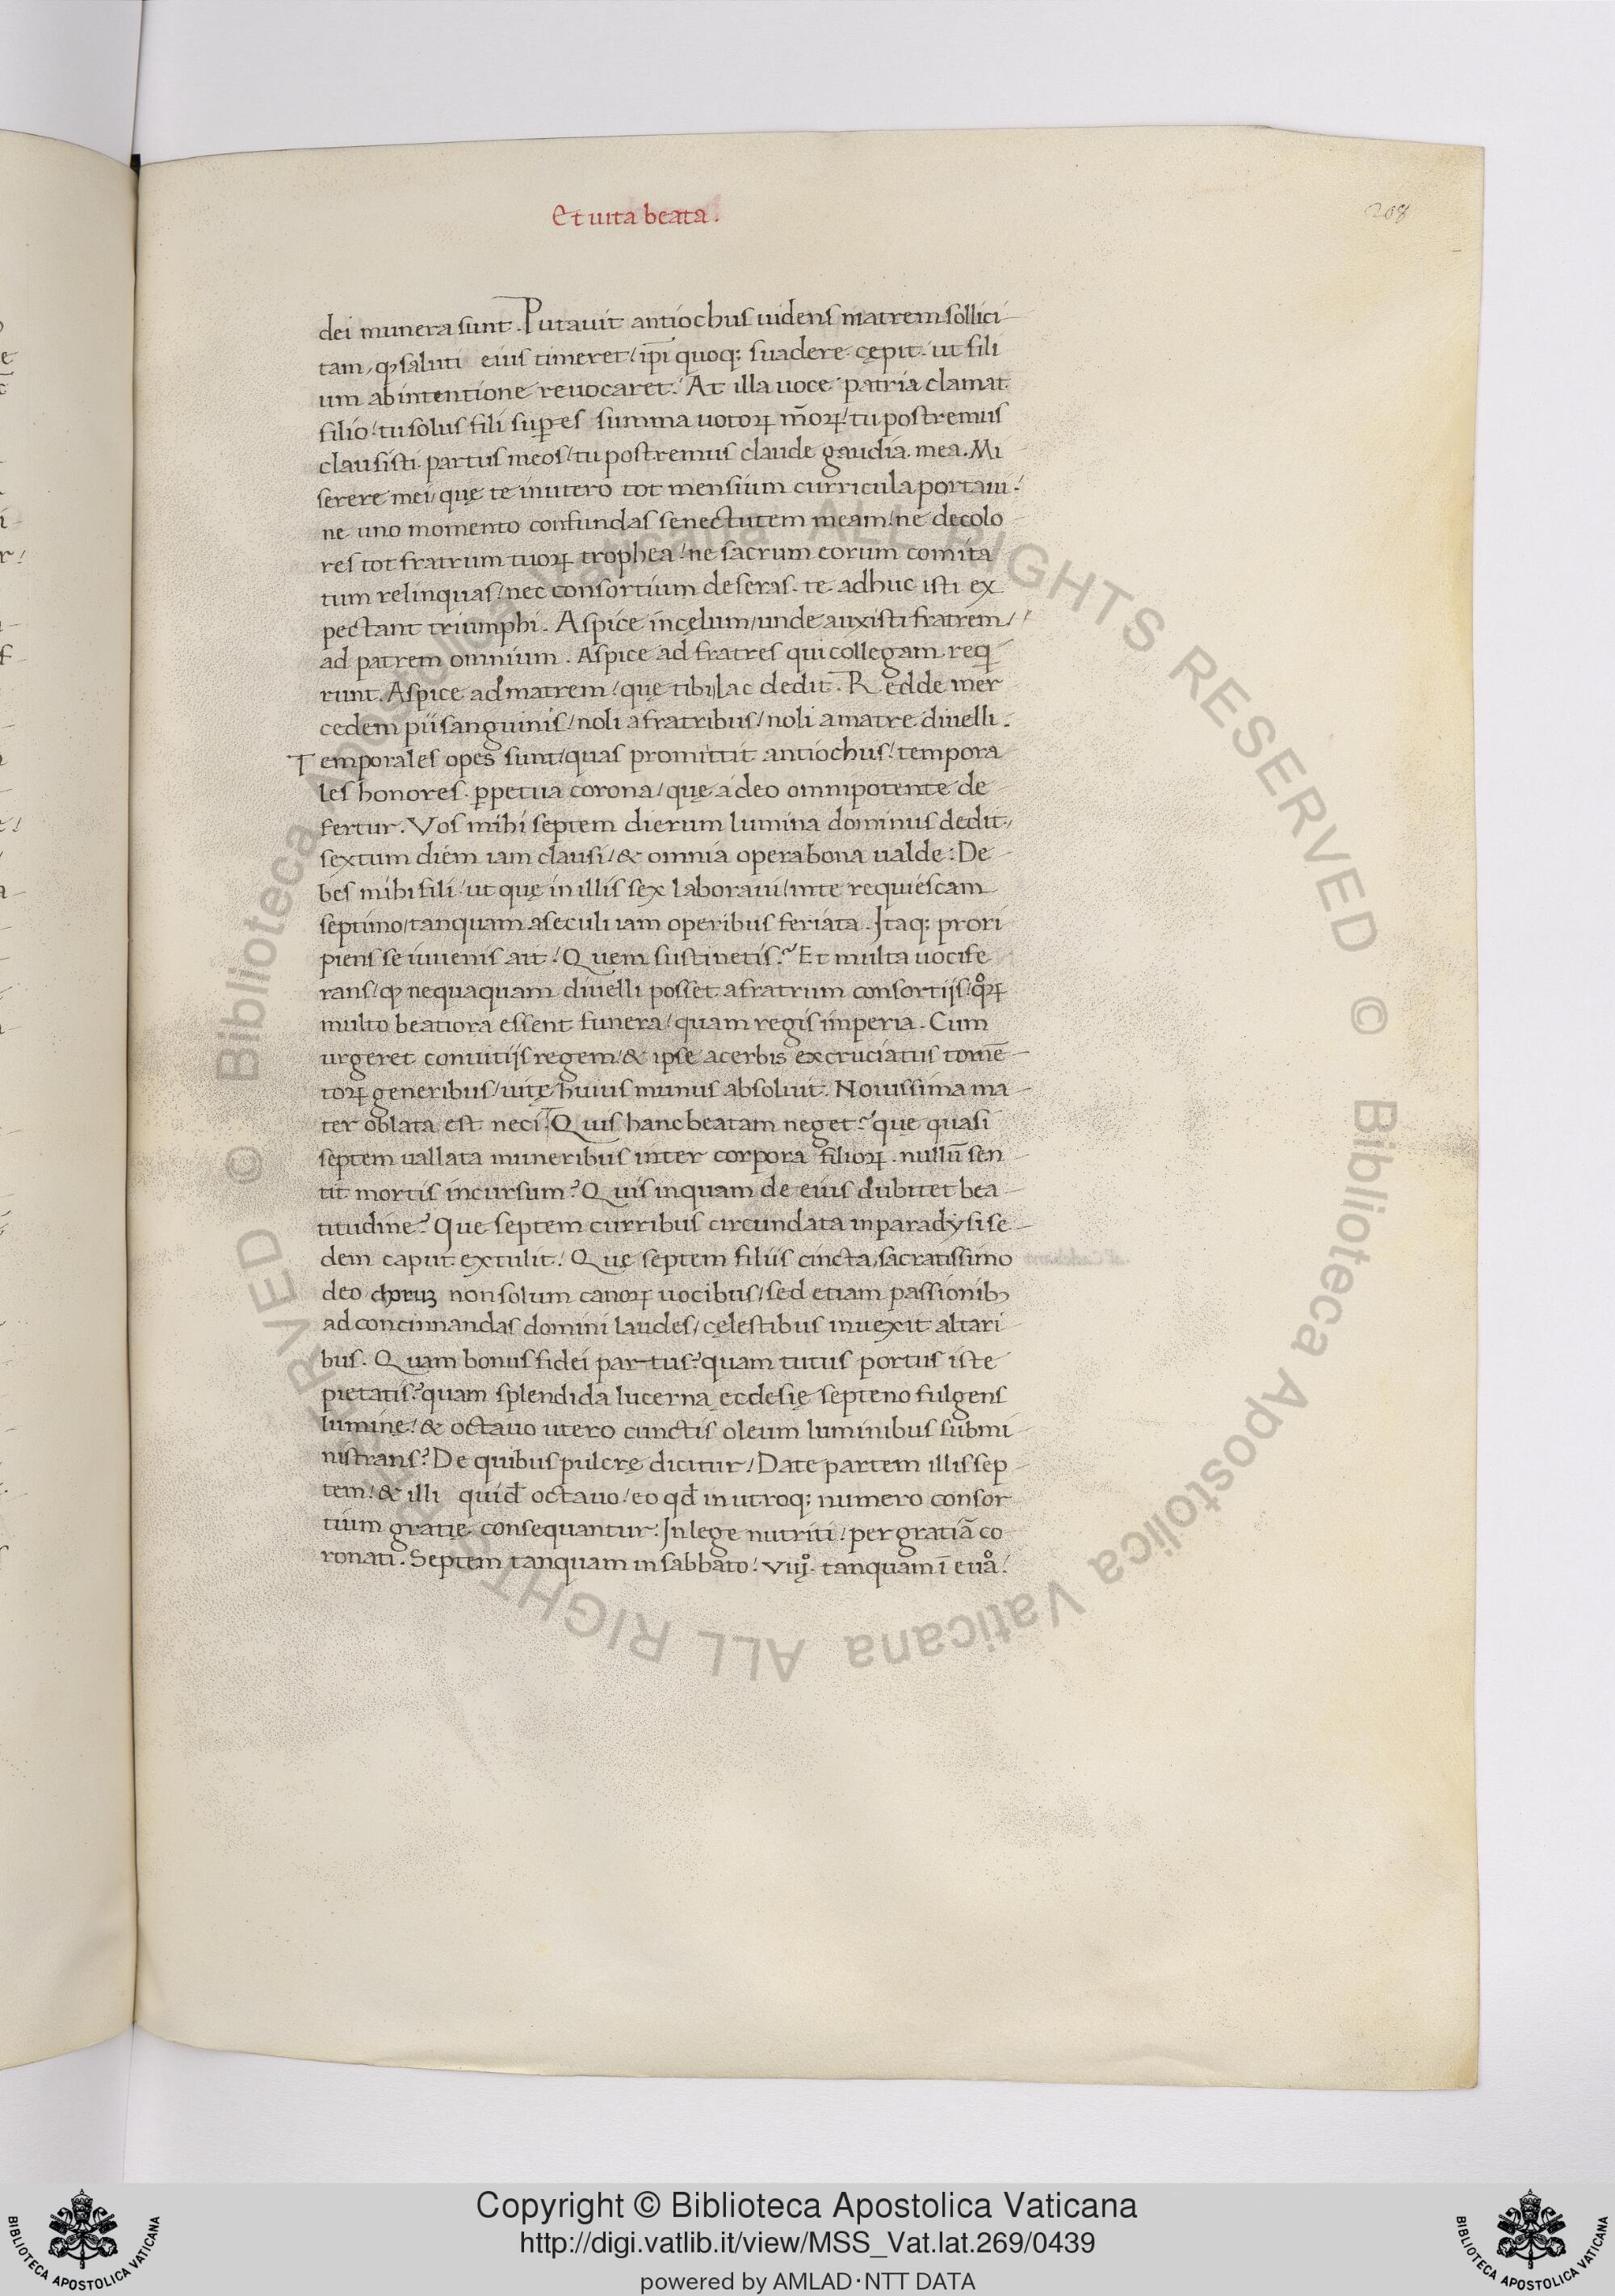 Et uita beata.
208
dei munera sunt. Putauit antiochus uidens matrem sollici
tam, ꝙ saluti eius timeret/ ip̄i quoq; suadere cępit. ut fili
um ab intentione reuocaret. At illa uoce patria clamat
filio/ tu solus fili suꝑes summa uotoꝝ m̄oꝝ/ tu postremus
clausisti partus meos/ tu postremus claude gaudia mea. Mi
serere mei/ quę te in utero tot mensium curricula portaui/
ne uno momento confundas senectutem meam/ ne decolo
res tot fratrum tuoꝝ trophea/ ne sacrum eorum comita
tum relinquas/ nec consortium deseras. te adhuc isti ex
pectant triumphi. Aspice in cęlum/ unde auxisti fratrem/
ad patrem omnium. Aspice ad fratres qui collegam reqͥ
runt. Aspice ad matrem/ quę tibi lac dedit. Redde mer
cedem pii sanguinis/ noli a fratribus/ noli a matre diuelli.
Temporales opes sunt/ quas promittit antiochus/ tempora
les honores. ꝑpetua corona/ quę a deo omnipotente de
fertur. Vos mihi septem dierum lumina dominus dedit/
sextum diem iam clausi/ & omnia opera bona ualde. De
bes mihi fili/ ut quę in illis sex laboraui/ in te requiescam
septimo/ tanquam a seculi iam operibus feriata. Itaq; prori
piens se iuuenis ait/ Quem sustinetis? Et multa uocife
rans/ ꝙ nequaquam diuelli posset a fratrum consortijs/ qͦꝝ
multo beatiora essent funera/ quam regis imperia. Cum
urgeret conuitijs regem/ & ipse acerbis excruciatus tormē
toꝝ generibus/ uitę huius munus absoluit. Nouissima ma
ter oblata est neci. Quis hanc beatam neget? quę quasi
septem uallata muneribus inter corpora filioꝝ. nullū sen
tit mortis incursum? Quis inquam de eius dubitet bea
titudine? Que septem curribus circundata in paradysi se
dem caput extulit/ Quę septem filiis cincta, sacratissimo
deo choruȝ non solum canoꝝ uocibus/ sed etiam passionibꝰ
ad concinnandas domini laudes/ cęlestibus inuexit altari
bus. Quam bonus fidei partus? quam tutus portus iste
pietatis? quam splendida lucerna ecclesię septeno fulgens
lumine/ & octauo utero cunctis oleum luminibus submi
nistrans? De quibus pulcrę dicitur/ Date partem illis sep
tem/ & illi quid̄ octauo/ eo qd̄ in utroq; numero consor
tium gratię consequantur. In lege nutriti/ per gratiā co
ronati. Septem tanquam in sabbato/ viijͦ. tanquam ī euͣ.
Copyright © Biblioteca Apostolica Vaticana
http://digi.vatlib.it/view/MSS_Vat.lat.269/0439
powered by AMLAD·NTT DATA
BIBLIOTECA APOSTOLICA VATICANA
BIBLIOTECA APOSTOLICA VATICANA